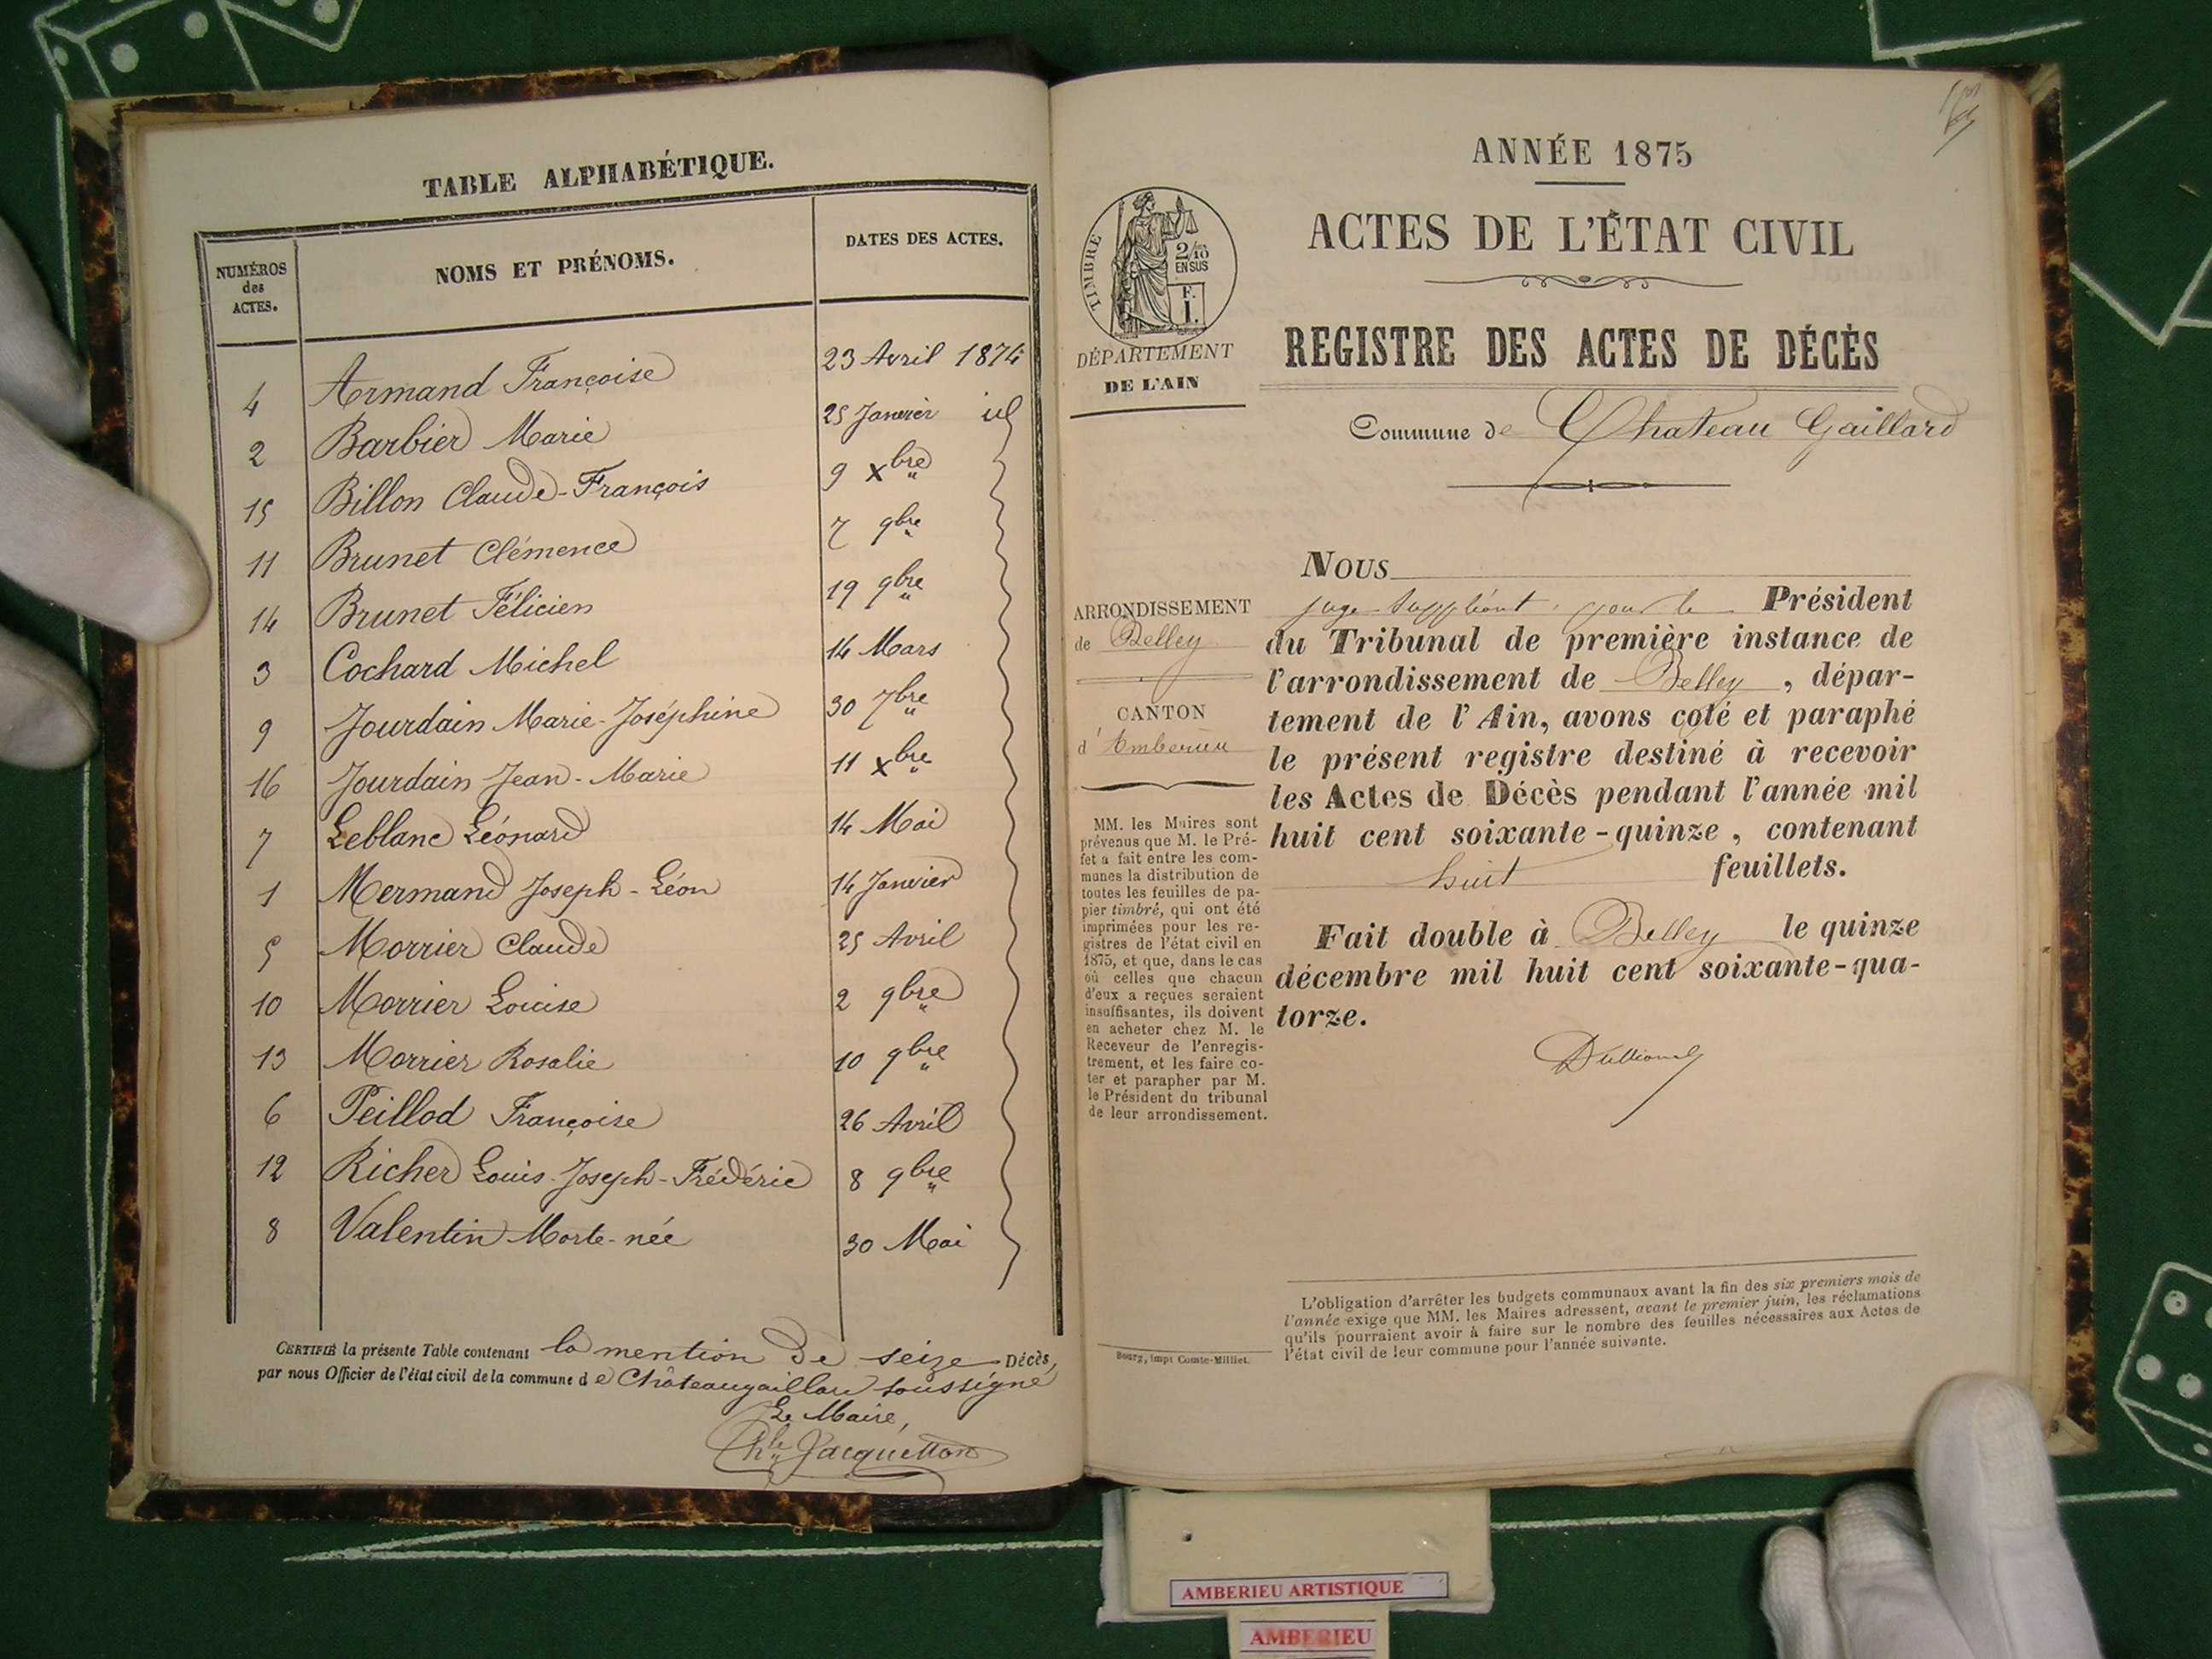 TABLE ALPHABÉTIQUE.
NUMÉROS des ACTES. NOMS ET PRÉNOMS. DATES DES ACTES.
4 Armand Françoise 23 Avril 1874
2 Barbier Marie 25 Janvier id
15 Billon Claude-François 9 xbre
11 Brunet Clémence 7 9bre
14 Brunet Félicien 19 9bre
3 Cochard Michel 14 Mars
9 Jourdain Marie-Joséphine 30 7bre
16 Jourdain Jean-Marie 11 xbre
7 Leblanc Léonard 14 Mai
1 Mermand Joseph-Léon 14 Janvier
5 Morrier Claude 25 Avril
10 Morrier Louise 2 9bre
13 Morrier Rosalie 10 9bre
6 Peillod Françoise 26 Avril
12 Richer Louis-Joseph-Frédéric 8 9bre
8 Valentin Morte-née 30 Mai
CERTIFIÉ la présente Table contenant la mention de seize Décès,
par nous Officier de l'état civil de la commune de Châteaugaillard soussigné
Le Maire,
Chle Jacquetton
ANNÉE 1875
ACTES DE L'ÉTAT CIVIL
REGISTRE DES ACTES DE DÉCÈS
TIMBRE
2/10
EN SUS
F.
1.
DÉPARTEMENT
DE L'AIN
Commune de Chateau Gaillard
ARRONDISSEMENT
de Belley
CANTON
d'Amberieu
MM. les Maires sont
prévenus que M. le Pré-
fet a fait entre les com-
munes la distribution de
toutes les feuilles de pa-
pier timbré, qui ont été
imprimées pour les re-
gistres de l'état civil en
1875, et que, dans le cas
où celles que chacun
d'eux a reçues seraient
insuffisantes, ils doivent
en acheter chez M. le
Receveur de l'enregis-
trement, et les faire co-
ter et parapher par M.
le Président du tribunal
de leur arrondissement.
NOUS
juge suppléant, pour le Président
du Tribunal de première instance de
l'arrondissement de Belley, dépar-
tement de l'Ain, avons coté et paraphé
le présent registre destiné à recevoir
les Actes de Décès pendant l'année mil
huit cent soixante-quinze, contenant
huit feuillets.
Fait double à Belley le quinze
décembre mil huit cent soixante-qua-
torze.
L'obligation d'arrêter les budgets communaux avant la fin des six premiers mois de
l'année exige que MM. les Maires adressent, avant le premier juin, les réclamations
qu'ils pourraient avoir à faire sur le nombre des feuilles nécessaires aux Actes de
l'état civil de leur commune pour l'année suivante.
Bourg, impr Comte-Milliet.
AMBERIEU ARTISTIQUE
AMBERIEU